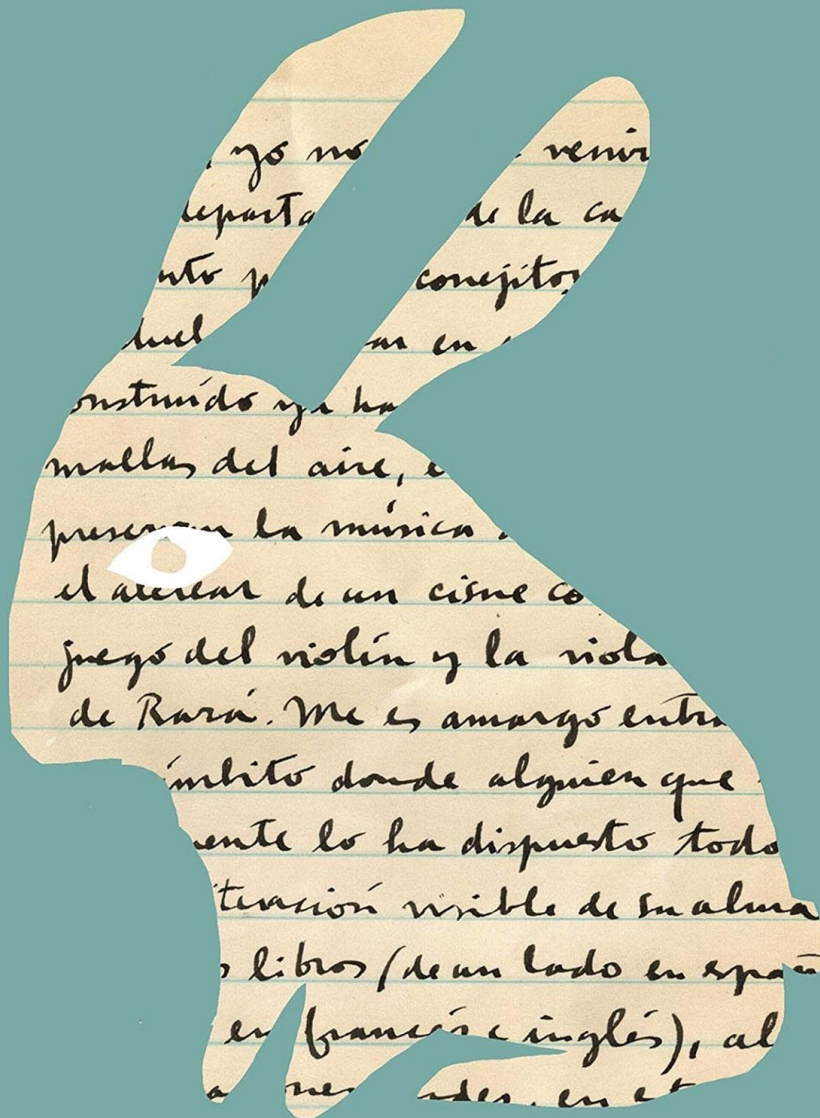 yo no venir
de la ca
conejito
en
ha
mallas del aire,
la música
el de un cisne co
juego del violín y la viola
de Rará. Me es amargo entra
ámbito donde alguien que
mente lo ha dispuesto todo
iteración visible de su alma
libros (de un lado en españ
en francés e inglés), al
en